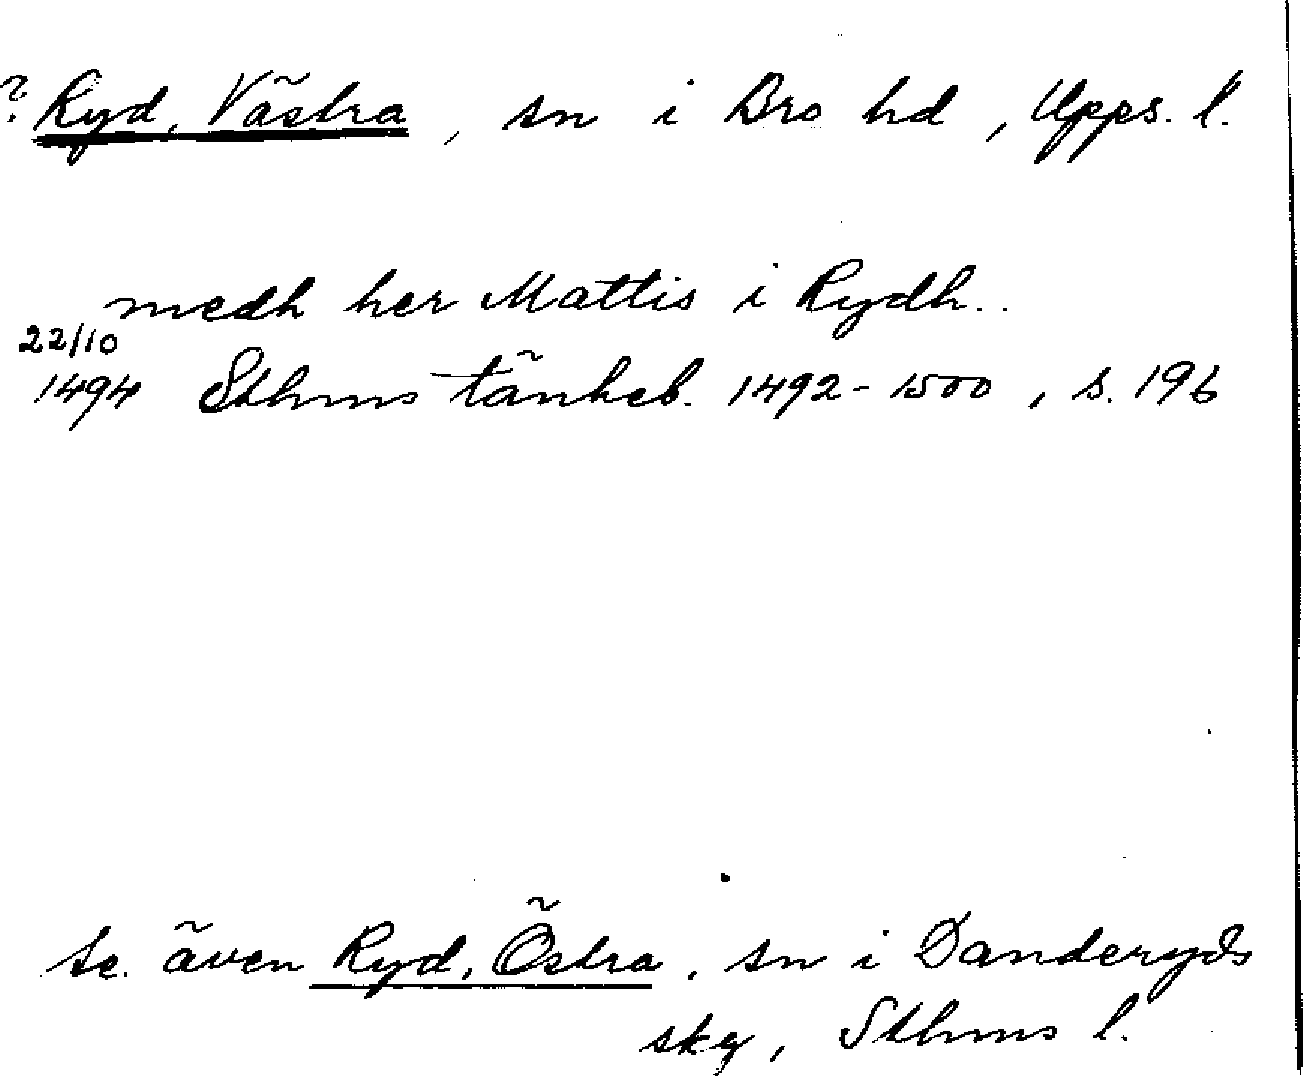 ? Ryd, Västra, sn i Bro hd, Upps. l.
medh her Mattis i Rydh..
22/10
1494 Sthms tänkeb. 1492-1500, s. 196
se även Ryd, Östra, sn i Danderyds
skg, Sthms l.